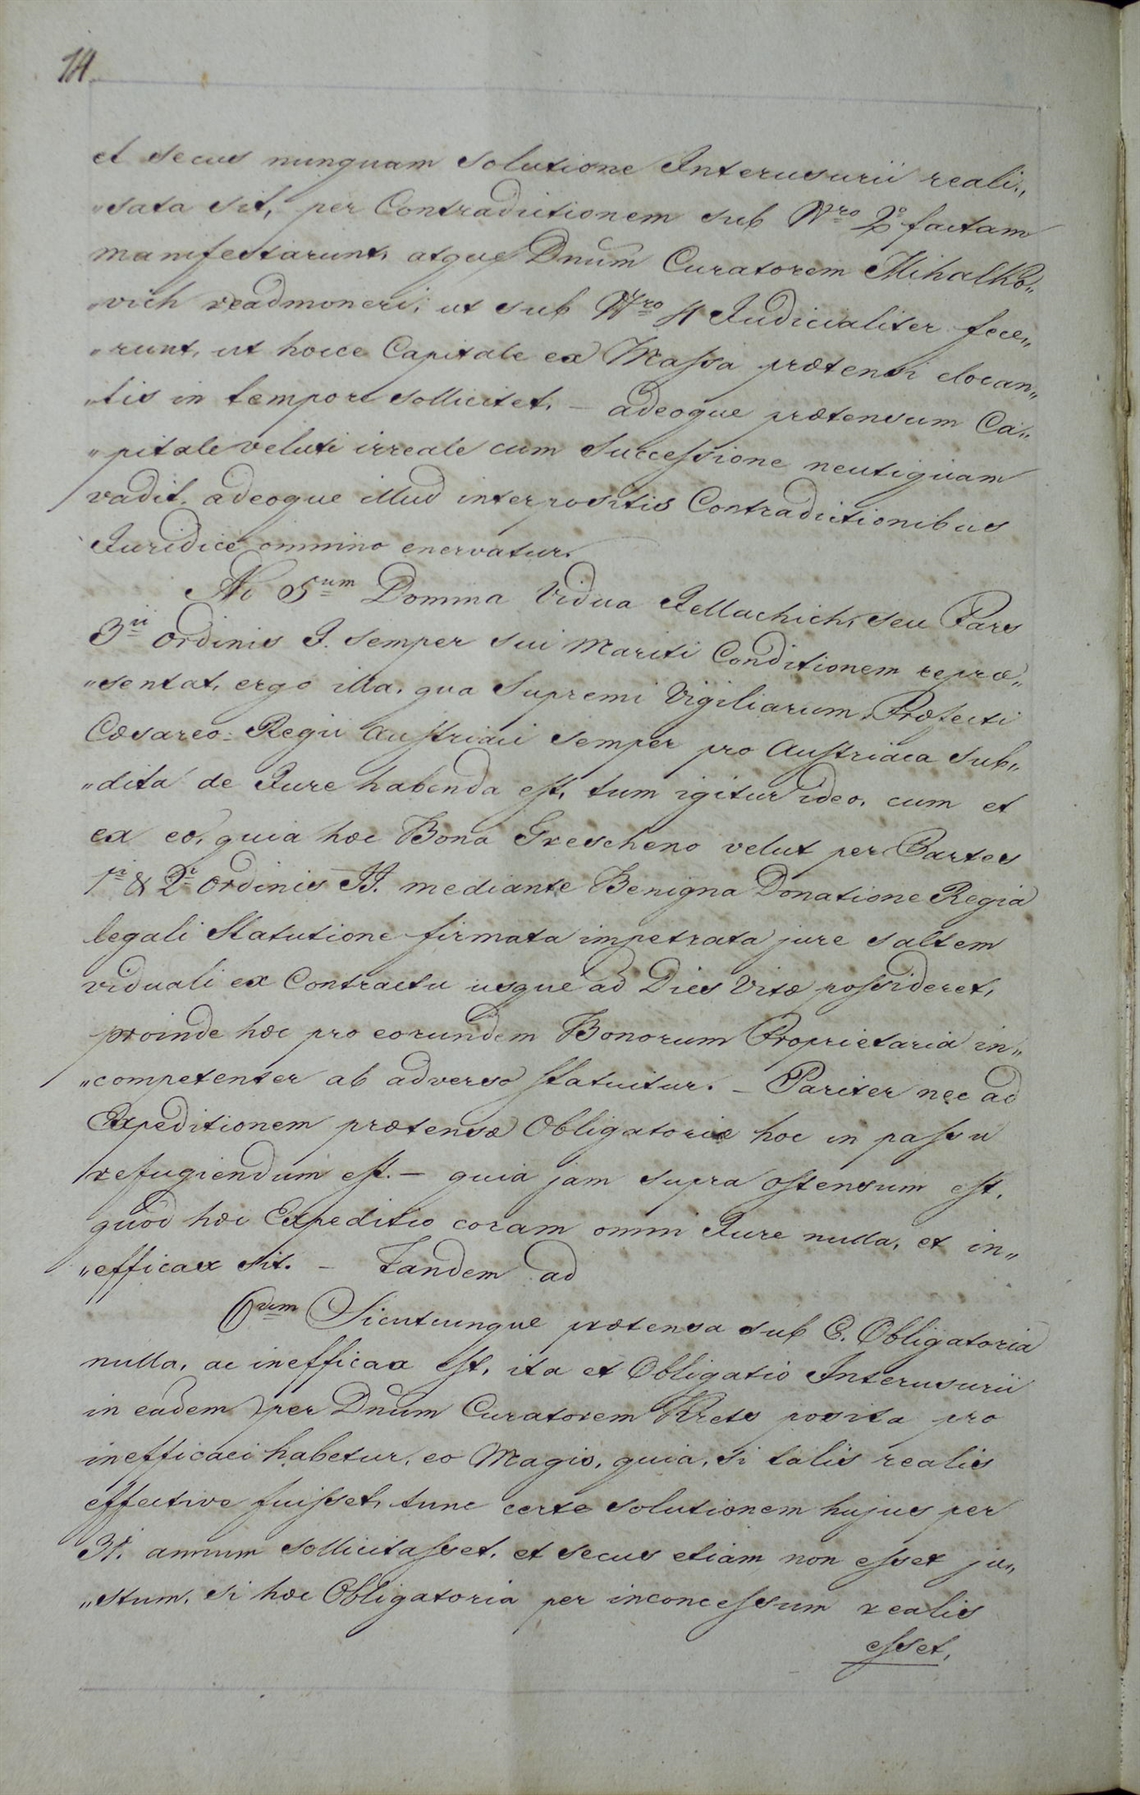 14.
et secus nunquam solutione Interusurii reali„
„sata sit, per Contradictionem sub Nro 2o factam
manifestarunt, atque Dnum Curatorem Mihalko„
„vich readmoneri, ut sub Nro 4 Judicialiter fece„
„runt, ut hocce Capitale ex Massa prætensi elocan„
„tis in tempore sollicitet. – adeoque prætensum Ca„
„pitale veluti irreale cum Successione neutiquam
vadit. adeoque illud interpositis Contradictionibus
Juridice omnino enervatur.
Ad 5um Domina Vidua Jellachich, seu Pars
3ii Ordinis J. semper sui Mariti Conditionem repræ„
„sentat, ergo illa, qua Supremi Vigiliarum Præfecti
Cæsareo-Regii Austriaci semper pro Austriaca sub„
„dita de Jure habenda est, tum igitur ideo, cum et
ex eo, quia hæc Bona Grescheno velut per Partes
1i & 2i Ordinis JJ. mediante Benigna Donatione Regia
legali Statutione firmata impetrata jure saltem
viduali ex Contractu usque ad Dies Vitæ possideret,
proinde hæc pro eorundem Bonorum Proprietaria in„
„competenter ab adverso statuitur. – Pariter nec ad
Expeditionem prætensæ Obligatoriæ hoc in passu
refugiendum est. – quia jam supra ostensum est,
quod hæc Expeditio coram omni Jure nulla, et in„
„efficax sit. – Tandem ad
6um Sicutcunque prætensa sub C. Obligatoria
nulla, ac inefficax est, ita et Obligatio Interusurii
in eadem per Dnum Curatorem Krets posita pro
inefficaci habetur, eo Magis, quia, si talis realis
effective fuisset, tunc certe solutionem hujus per
31. annum sollicitasset, et secus etiam non esset ju„
„stum, si hæc Obligatoria per inconcessum realis
esset,